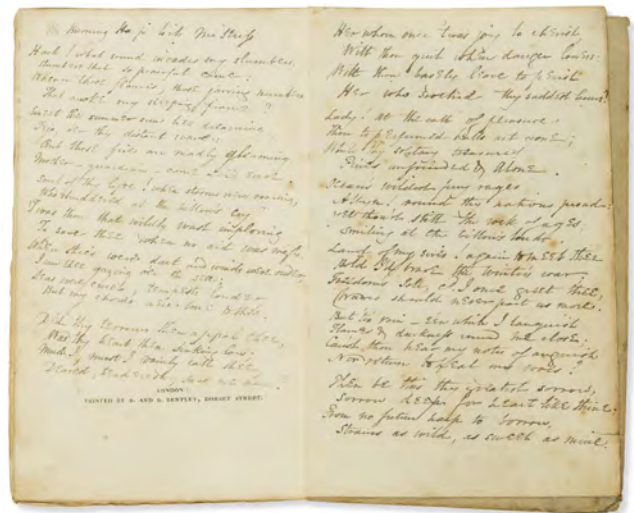 The Burning Harp to its Mistress
Hark! what sound invades my slumbers,
slumbers that so peaceful were!
Whence these flames, that jarring numbers
That my sleeping frame?
Sweet the summer was her dreaming
o'er thy distant wave;
But these fires are madly gleaming
Mistress - guardian - come and save
Soul of thy lyre! when storms were roaring,
Who shuddered at the billows cry
I was thou that wildly wast imploring
To save thee when no aid was nigh.
When skies were dark and winds were
I saw thee gazing o'er the sea:
Seas were rough, tempests louder
But my chords were true to thee.
Did thy terrors then appal thee,
Was thy heart then sinking low.
Must I, must I vainly call thee,
save me now.
LONDON:
PRINTED BY S. AND R. BENTLEY, DORSET STREET.
Her whom once 'twas joy to cherish,
Wilt thou quit when danger lowers:
Wilt thou basely leave to perish
Her who soothed thy saddest hours?
Lady! at the call of pleasure
Thou to perfumed halls art gone;
While thy solitary treasure
Pines unfriended & alone.
Oceans wildest fury rages
Albion! round thy nations proud:
Yet thou'rt still the rock of ages
Smiling at the billows loud
Land of my sires! again to meet thee
Hold I'd brave the winter's war:
Freedoms Isle, if I once greet thee,
Graves should never part us more.
But 'tis vain - e'en while I languish
Flames & darkness round me close:
Canst thou hear my notes of anguish
Nor return to heal my woes?
Then be this thy greatest sorrow,
Sorrow deep for heart like thine:
From no future harp to borrow,
Strains as wild, as sweet as mine.